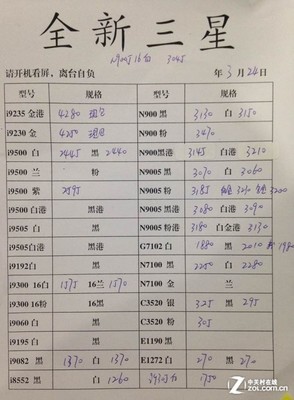 全新三星
n9005 16白 3045
请开机看屏，离台自负 年3月24日
型号 规格 型号 规格
i9235 金港 4280 N900 黑 3130 白 3150
i9230 金 4250 N900 粉 3470
i9500 白 2445 黑 2440 N900黑港 3145 白港 3210
i9500 兰 粉 N9005 黑 3070 白 3060
i9500 紫 2595 N9005 粉 3185 3210 3200
i9500 白港 黑港 N9005 黑港 3080 白港 3090
i9505 白 黑 N9005 粉港 3180 白金港 3130
i9505白港 黑港 G7102 白 1880 黑 2010 粉 1980
i9192白 黑 N7100 黑 2250 白 2280
i9300 16白 1575 16兰 1570 N7100 金 兰
i9300 16粉 16黑 C3520 银 325 黑 295
i9060 白 黑 C3520 粉 305
i9195 白 黑 E1190 黑
i9082 黑 1370 白 1370 E1272 白 270 黑 270
i8552 黑 白 1260 1750
ZOL 中关村在线
zol.com.cn